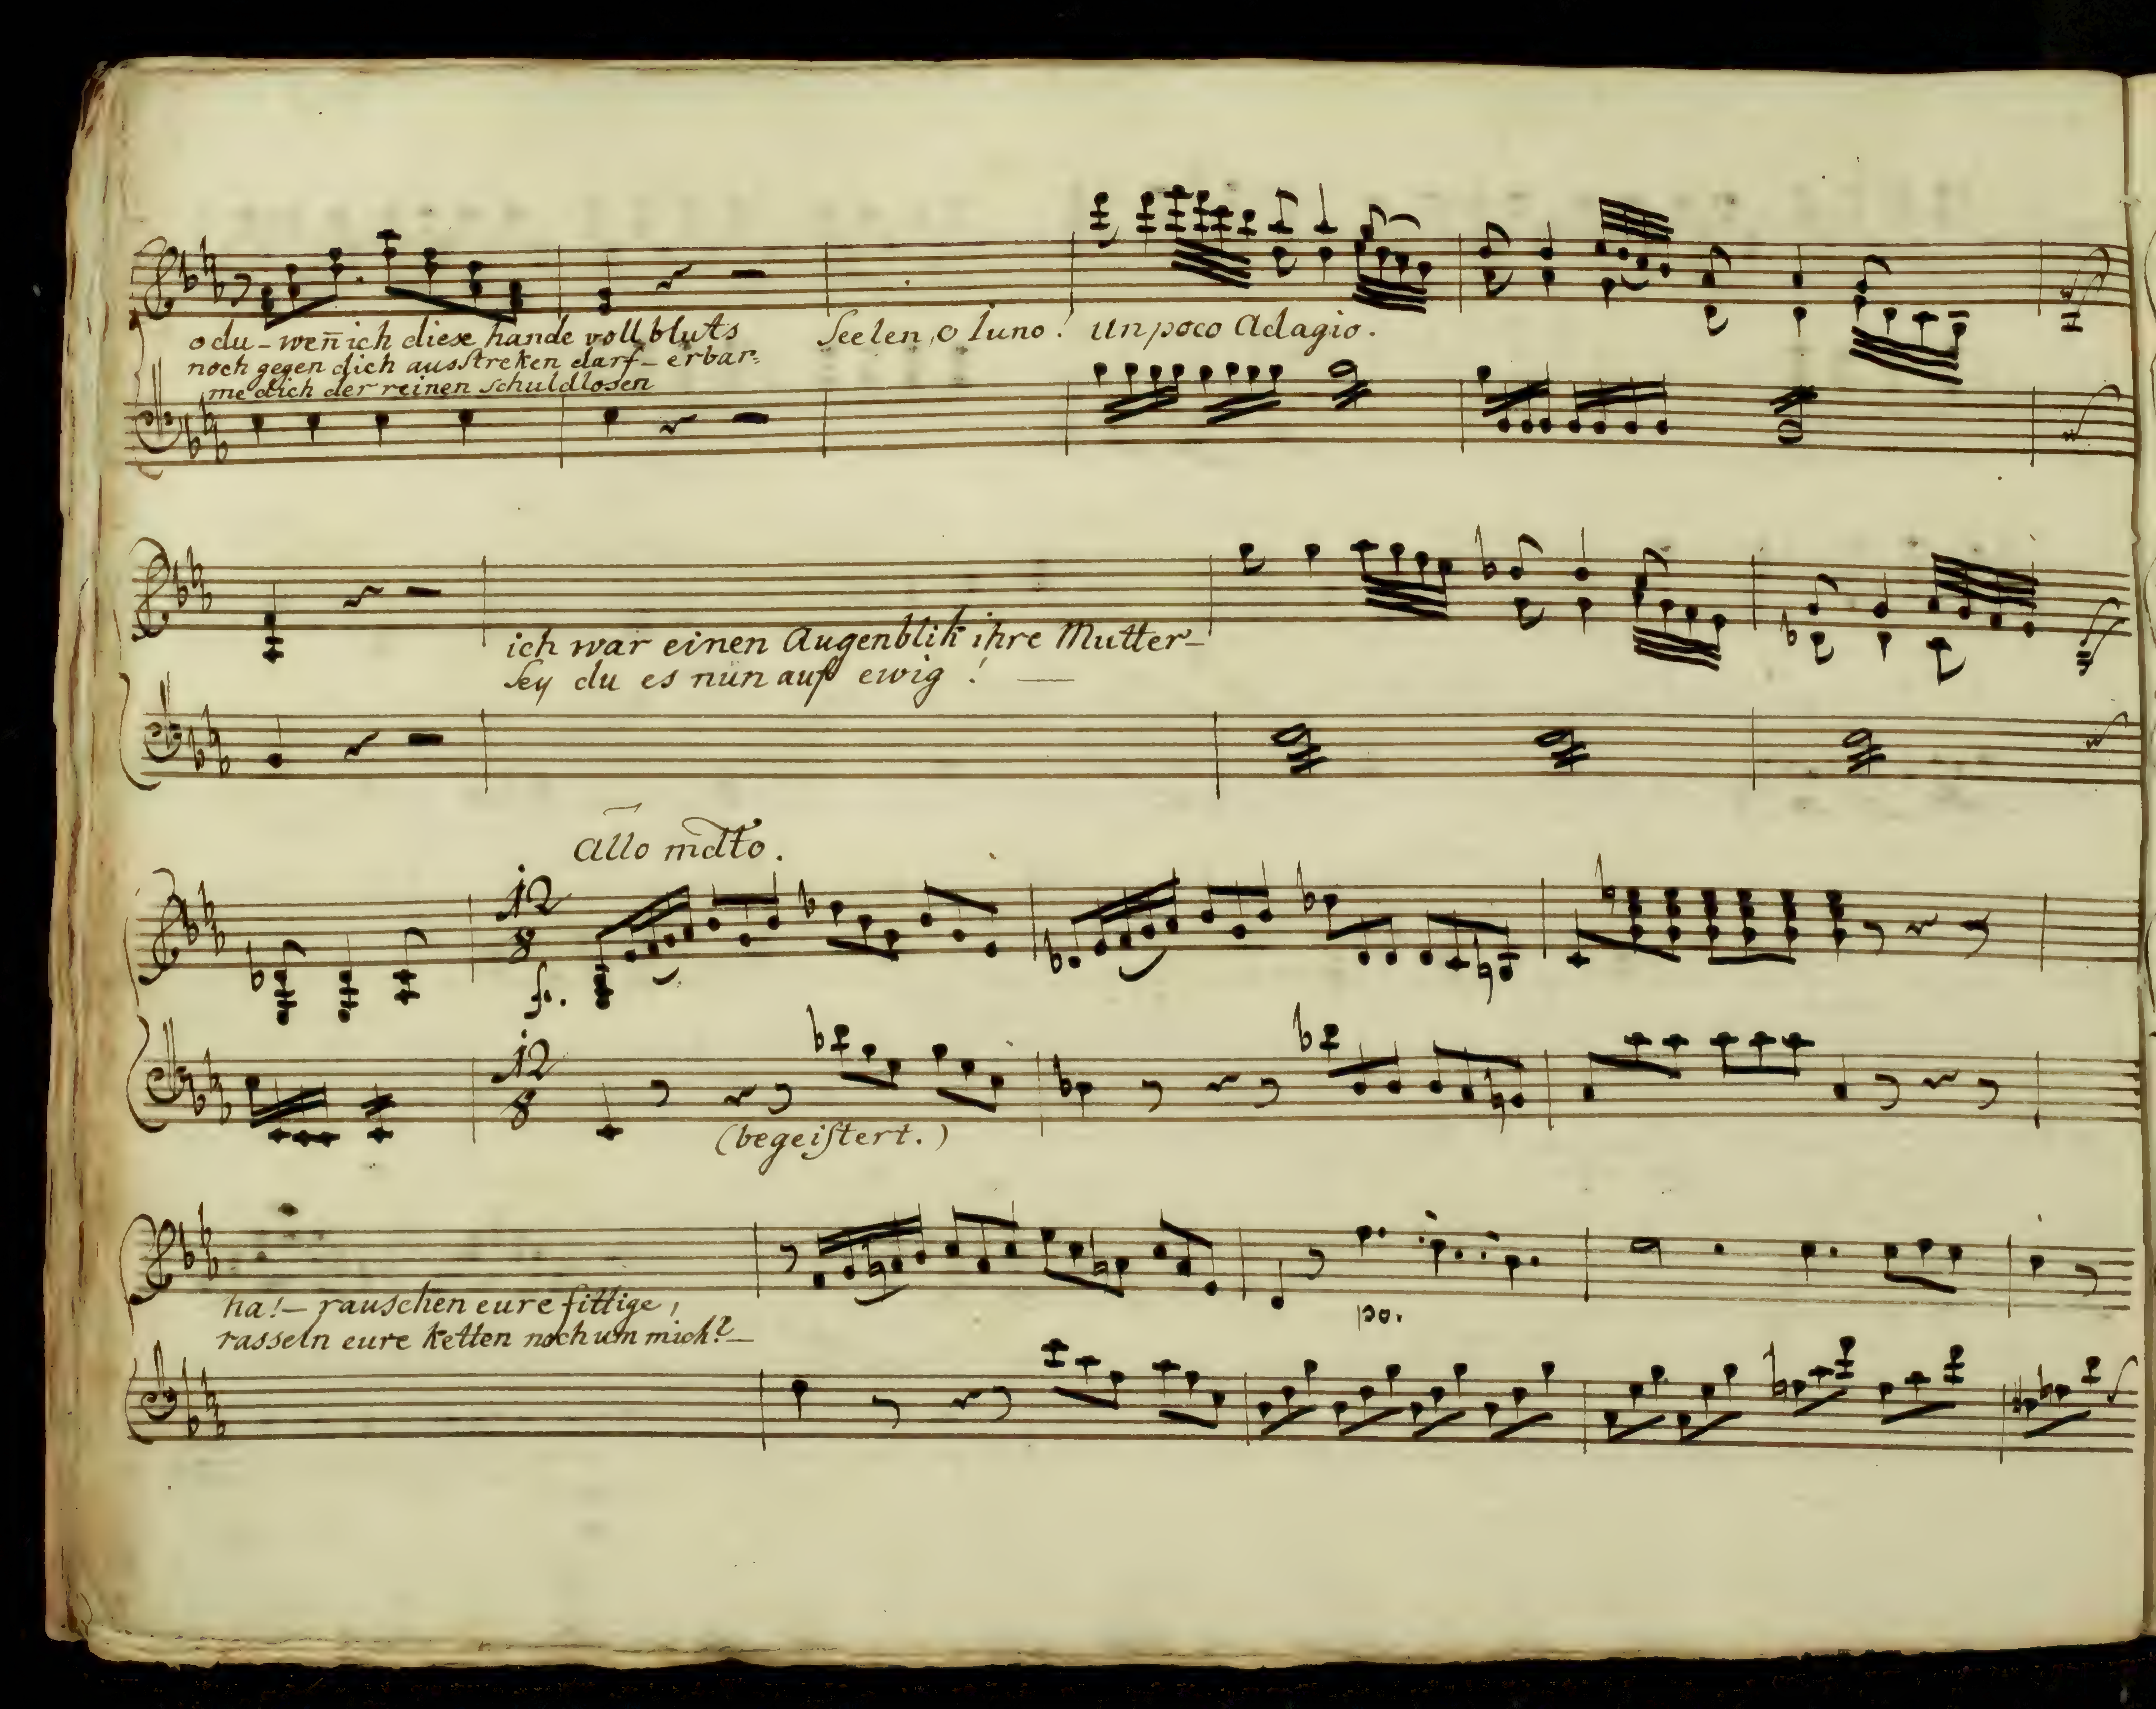 odu - weñ ich diese hande voll bluts
noch gegen dich ausstreken darf - erbar=
me dich der reinen schuldlosen
Seelen, o Iuno! un poco Adagio.
ich war einen Augenblik ihre Mutter -
Sey du es nun auf ewig! —
Allo mdto.
12
8
f.
12
8
(begeistert.)
ha! - rauschen eure fittige,
rasseln eure ketten noch um mich? -
po.